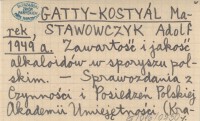 GATTY-KOSTYÁL Ma-
rek, STAWOWCZYK Adolf
1949 a. Zawartość i jakość
alkaloidów w sporyszu pol-
skim — Sprawozdania z
Czynności i Posiedzeń Polskiej
Akademii Umiejętności (Kra-